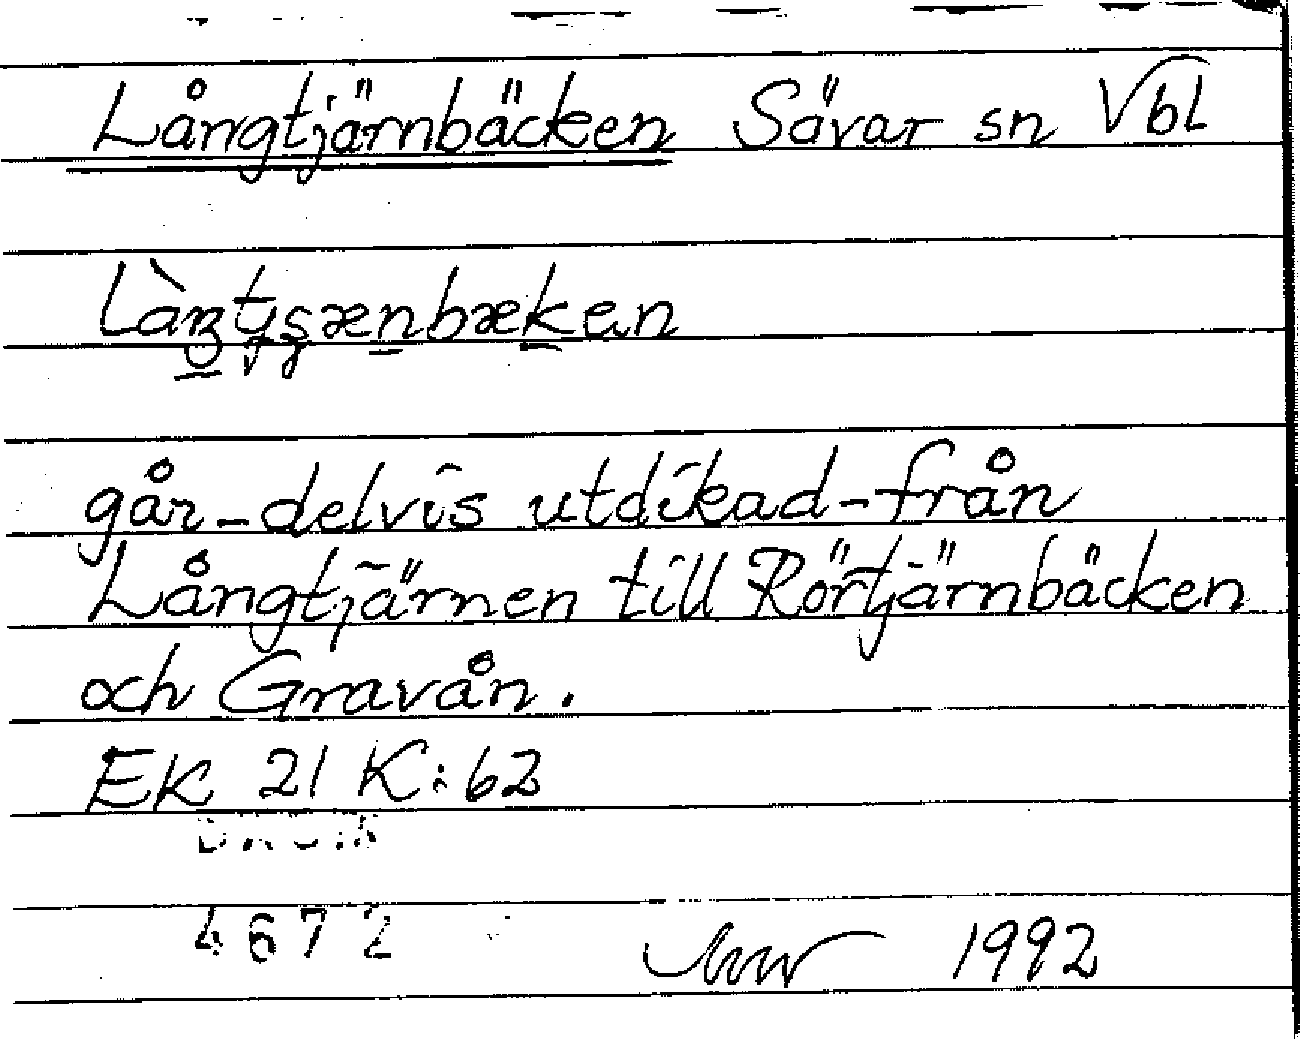 Långtjärnbäcken Sävar sn Vbl
går - delvis utdikad - från
Långtjärnen till Rörtjärnbäcken
och Gravån.
EK 21 K:62
4672 1992